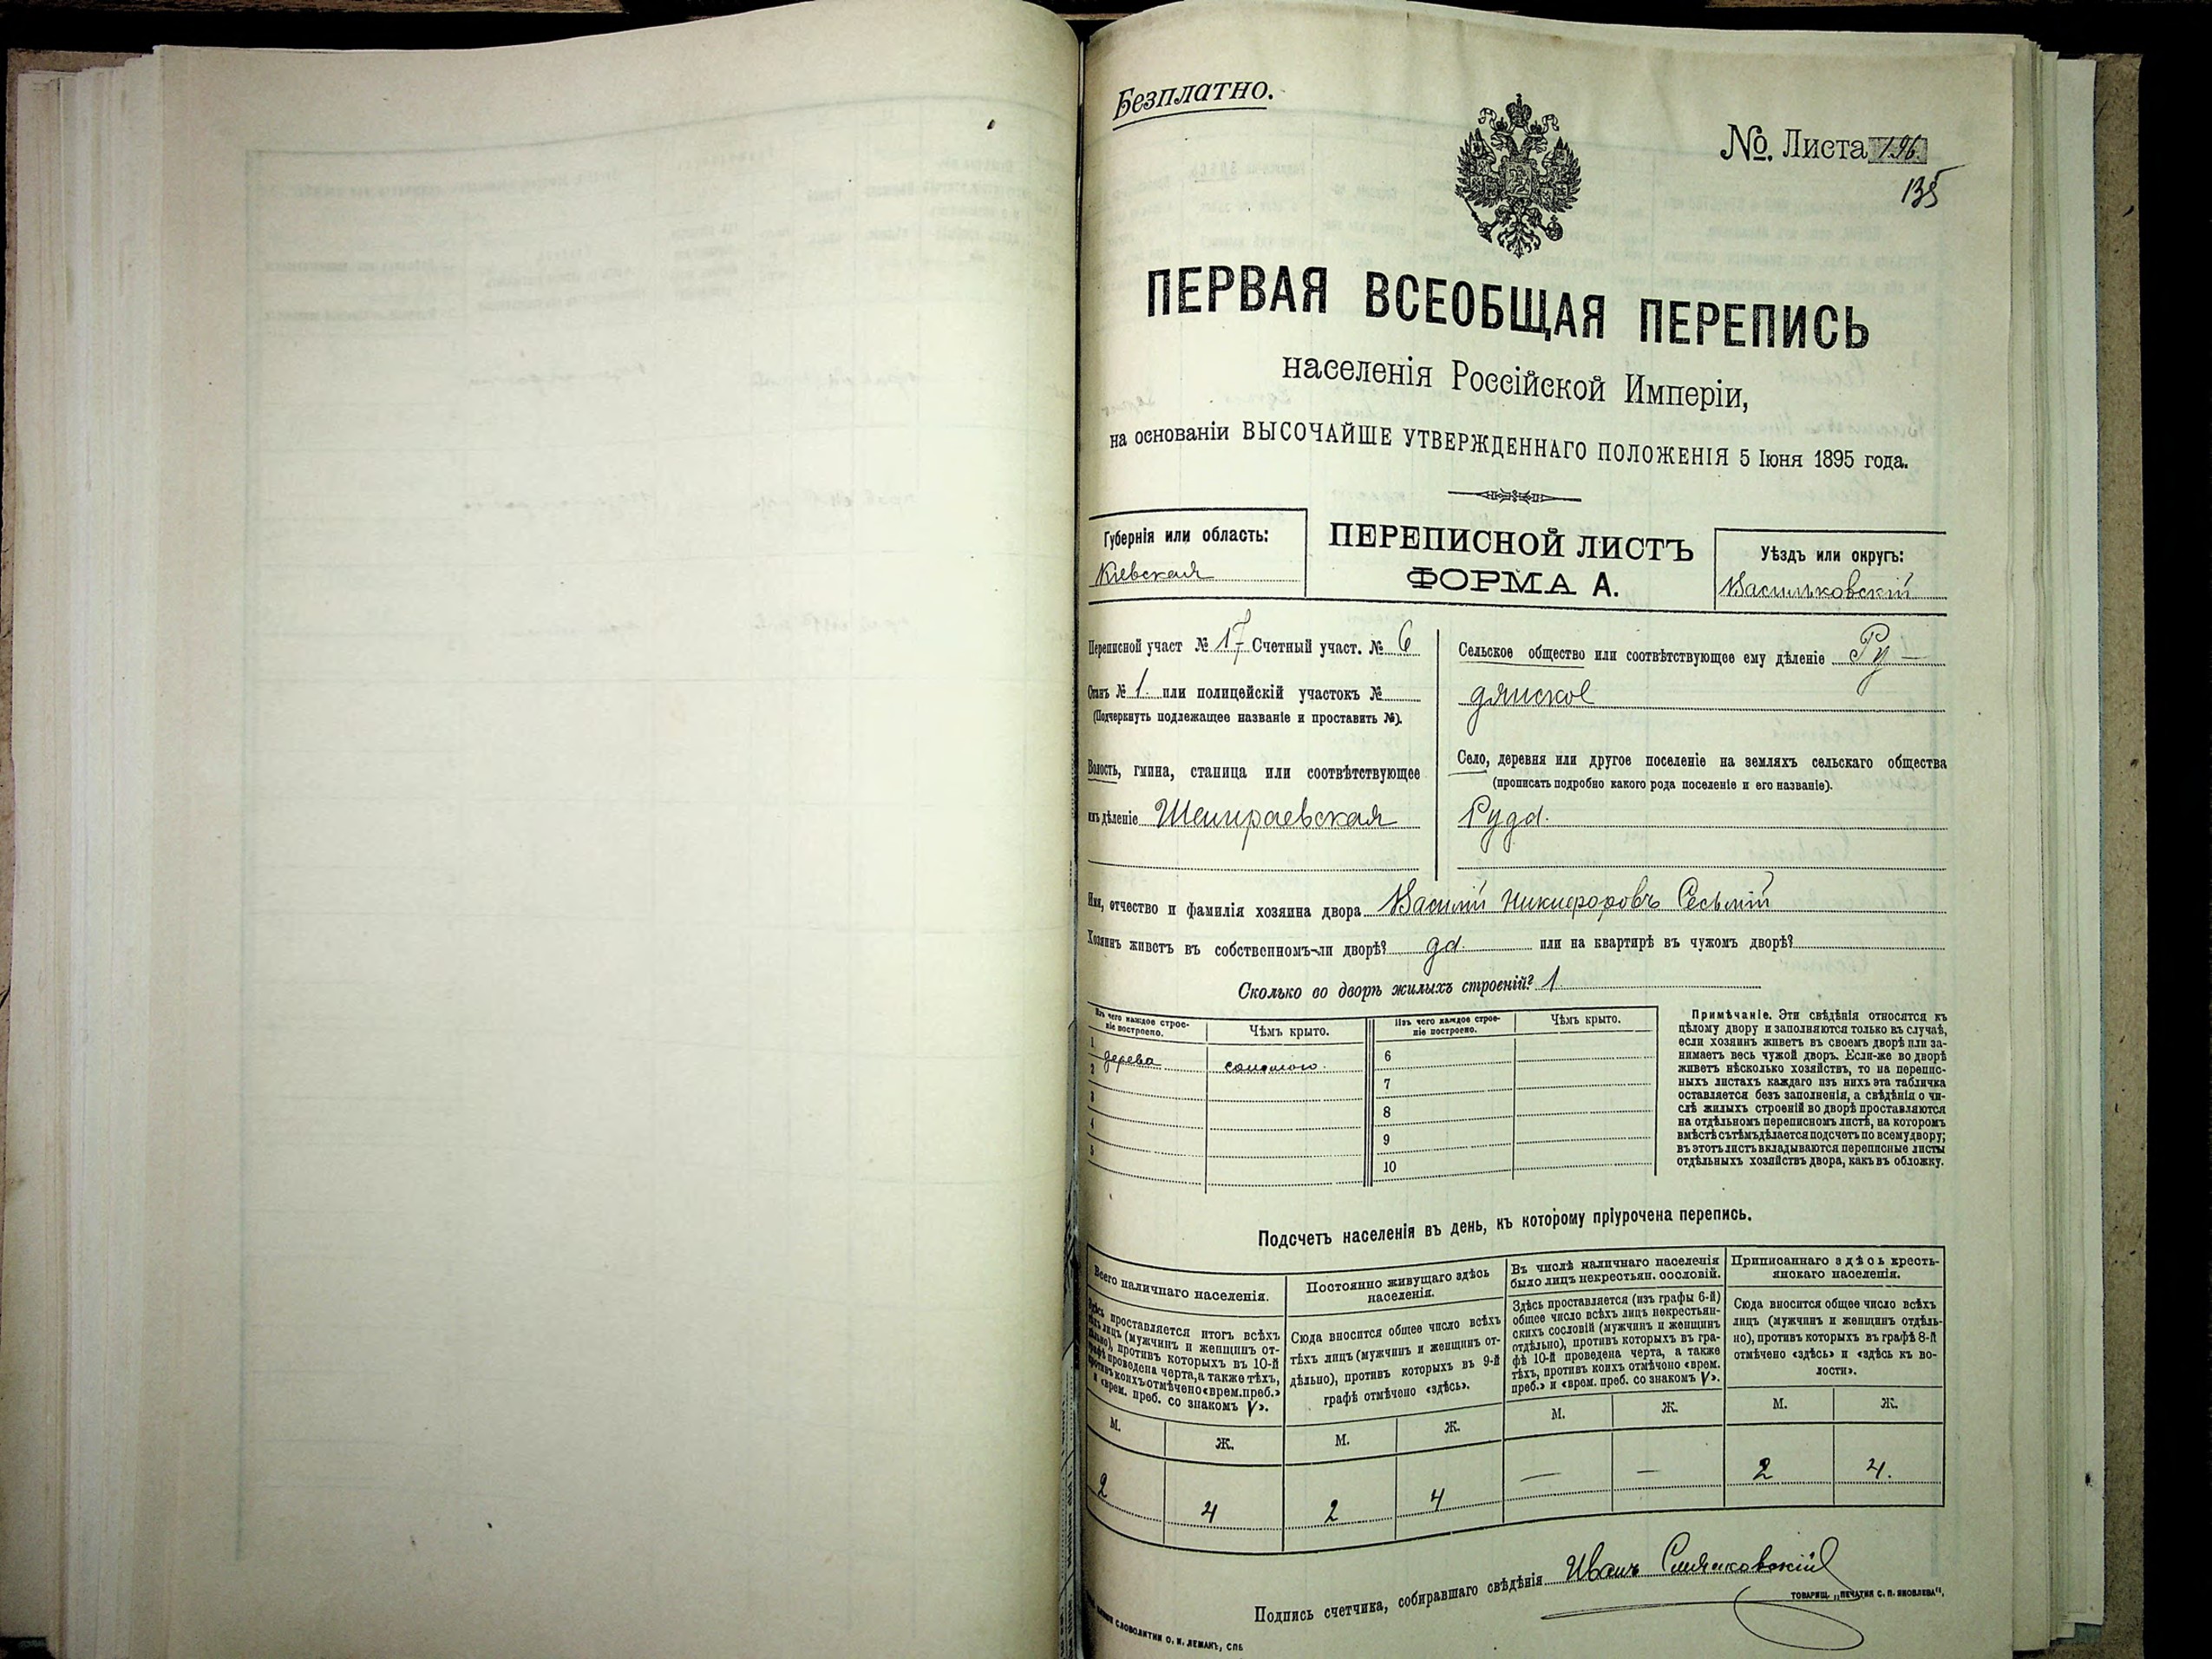 Безплатно.
№. Листа 196.
135
ПЕРВАЯ ВСЕОБЩАЯ ПЕРЕПИСЬ
населенія Россійской Имперіи,
на основаніи ВЫСОЧАЙШЕ УТВЕРЖДЕННАГО ПОЛОЖЕНІЯ 5 Іюня 1895 года.
Губернія или область:
Кіевская
ПЕРЕПИСНОЙ ЛИСТЪ
ФОРМА А.
Уѣздъ или округъ:
Васильковскій
Переписной участ № 17 Счетный участ. № 6
Станъ № 1. или полицейскій участокъ №
(Подчеркнуть подлежащее названіе и проставить №).
Волость, гмина, станица или соотвѣтствующее
имъ дѣленіе Шамраевская
Сельское общество или соотвѣтствующее ему дѣленіе Ру-
дянское
Село, деревня или другое поселеніе на земляхъ сельскаго общества
(прописать подробно какого рода поселеніе и его названіе).
Руда.
Имя, отчество и фамилія хозяина двора Василій Никифоровъ
Хозяинъ живетъ въ собственномъ-ли дворѣ? да. или на квартирѣ въ чужомъ дворѣ?
Сколько во дворѣ жилыхъ строеній? 1.
Изъ чего каждое строе-
ніе построено.
Чѣмъ крыто.
Изъ чего каждое строе-
ніе построено.
Чѣмъ крыто.
1 дерева соломою.
2
3
4
5
6
7
8
9
10
Примѣчаніе. Эти свѣдѣнія относятся къ
цѣлому двору и заполняются только въ случаѣ,
если хозяинъ живетъ въ своемъ дворѣ или за-
нимаетъ весь чужой дворъ. Если-же во дворѣ
живетъ нѣсколько хозяйствъ, то на перепис-
ныхъ листахъ каждаго изъ нихъ эта табличка
оставляется безъ заполненія, а свѣдѣнія о чи-
слѣ жилыхъ строеній во дворѣ проставляются
на отдѣльномъ переписномъ листѣ, на которомъ
вмѣстѣ съ тѣмъ дѣлается подсчетъ по всему двору;
въ этотъ листъ вкладываются переписные листы
отдѣльныхъ хозяйствъ двора, какъ въ обложку.
Подсчетъ населенія въ день, къ которому пріурочена перепись.
Всего наличнаго населенія.
Здѣсь проставляется итогъ всѣхъ
тѣхъ лицъ (мужчинъ и женщинъ от-
дѣльно), противъ которыхъ въ 10-й
графѣ проведена черта, а также тѣхъ,
противъ коихъ отмѣчено «врем. преб.»
и «врем. преб. со знакомъ V».
Постоянно живущаго здѣсь
населенія.
Сюда вносится общее число всѣхъ
тѣхъ лицъ (мужчинъ и женщинъ от-
дѣльно), противъ которыхъ въ 9-й
графѣ отмѣчено «здѣсь».
Въ числѣ наличнаго населенія
было лицъ некрестьян. сословій.
Здѣсь проставляется (изъ графы 6-й)
общее число всѣхъ лицъ некрестьян-
скихъ сословій (мужчинъ и женщинъ
отдѣльно), противъ которыхъ въ гра-
фѣ 10-й проведена черта, а также
тѣхъ, противъ коихъ отмѣчено «врем.
преб.» и «врем. преб. со знакомъ V».
Приписаннаго здѣсь кресть-
янскаго населенія.
Сюда вносится общее число всѣхъ
лицъ (мужчинъ и женщинъ отдѣль-
но), противъ которыхъ въ графѣ 8-й
отмѣчено «здѣсь» и «здѣсь къ во-
лости».
М. Ж. М. Ж. М. Ж. М. Ж.
2 4 2 4 — — 2 4.
Подпись счетчика, собиравшаго свѣдѣнія Иванъ
ТОВАРИЩ. „ПЕЧАТНЯ С. П. ЯКОВЛЕВА“,
СЛОВОЛИТНИ О. И. ЛЕМАНЪ, СПБ